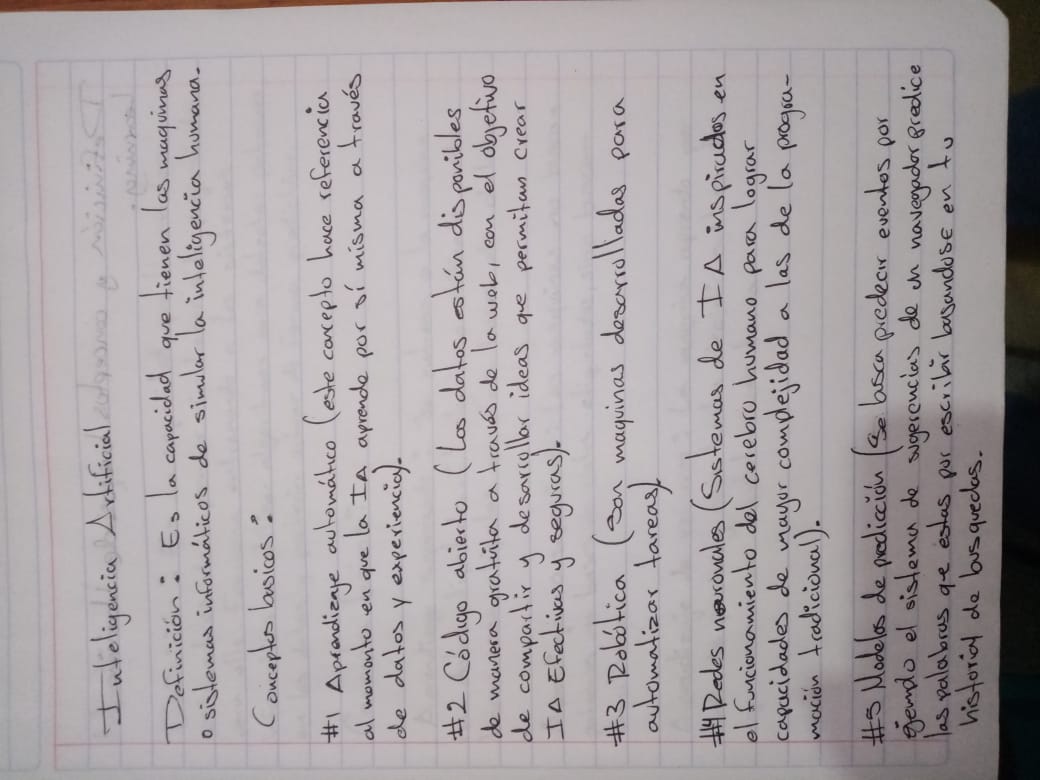 Inteligencia Artificial
Definición: Es la capacidad que tienen las maquinas
o sistemas informáticos de simular la inteligencia humana.
Conceptos basicos:
#1 Aprendizaje automático (este concepto hace referencia
al momento en que la IA aprende por sí misma a través
de datos y experiencia).
#2 Código abierto (Los datos están disponibles
de manera gratuita a través de la web, con el objetivo
de compartir y desarrollar ideas que permitan crear
IA Efectivas y seguras).
#3 Robótica (Son maquinas desarrolladas para
automatizar tareas)
#4 Redes neuronales (Sistemas de IA inspirados en
el funcionamiento del cerebro humano para lograr
capacidades de mayor complejidad a las de la progra-
mación tradicional).
#5 Modelos de predicción (Se busca predecir eventos por
ejemplo el sistema de sugerencias de un navegador predice
las palabras que estas por escribir basandose en tu
historial de busquedas.